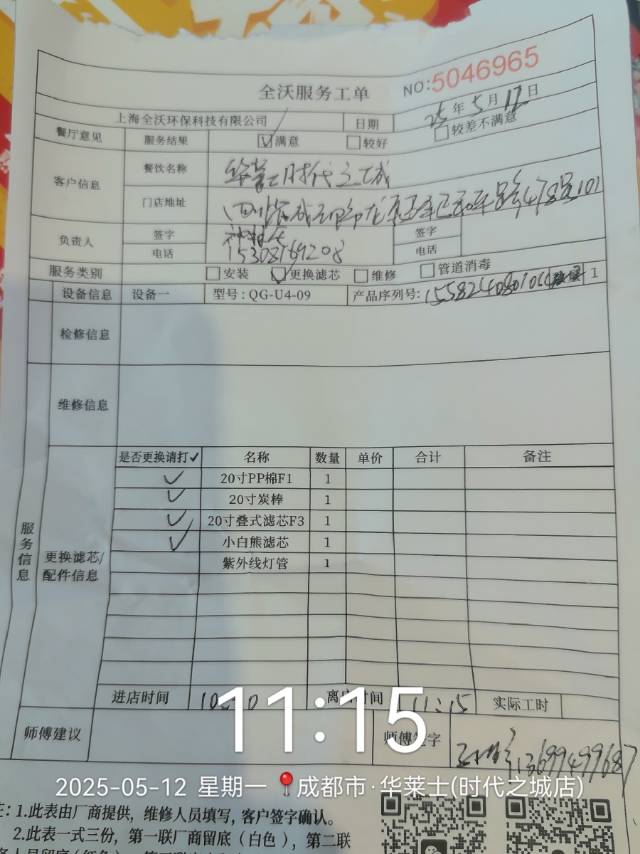 全沃服务工单
NO:5046965
上海全沃环保科技有限公司 日期 25年5月12日
餐厅意见 服务结果 满意 较好 较差不满意
客户信息 餐饮名称 华莱士时代之城
门店地址 四川省成都市龙
负责人 签字 签字
电话 电话
服务类别 安装 更换滤芯 维修 管道消毒
设备信息 设备一 型号:QG-U4-09 产品序列号: 1
检修信息
维修信息
服务信息
更换滤芯/配件信息
是否更换请打✓ 名称 数量 单价 合计 备注
✓ 20寸PP棉F1 1
✓ 20寸炭棒 1
✓ 20寸叠式滤芯F3 1
✓ 小白熊滤芯 1
紫外线灯管 1
进店时间 离店时间 11:15 实际工时
师傅建议 师傅签字
11:15
2025-05-12 星期一 成都市·华莱士(时代之城店)
注:1.此表由厂商提供，维修人员填写，客户签字确认。
2.此表一式三份，第一联厂商留底(白色)，第二联